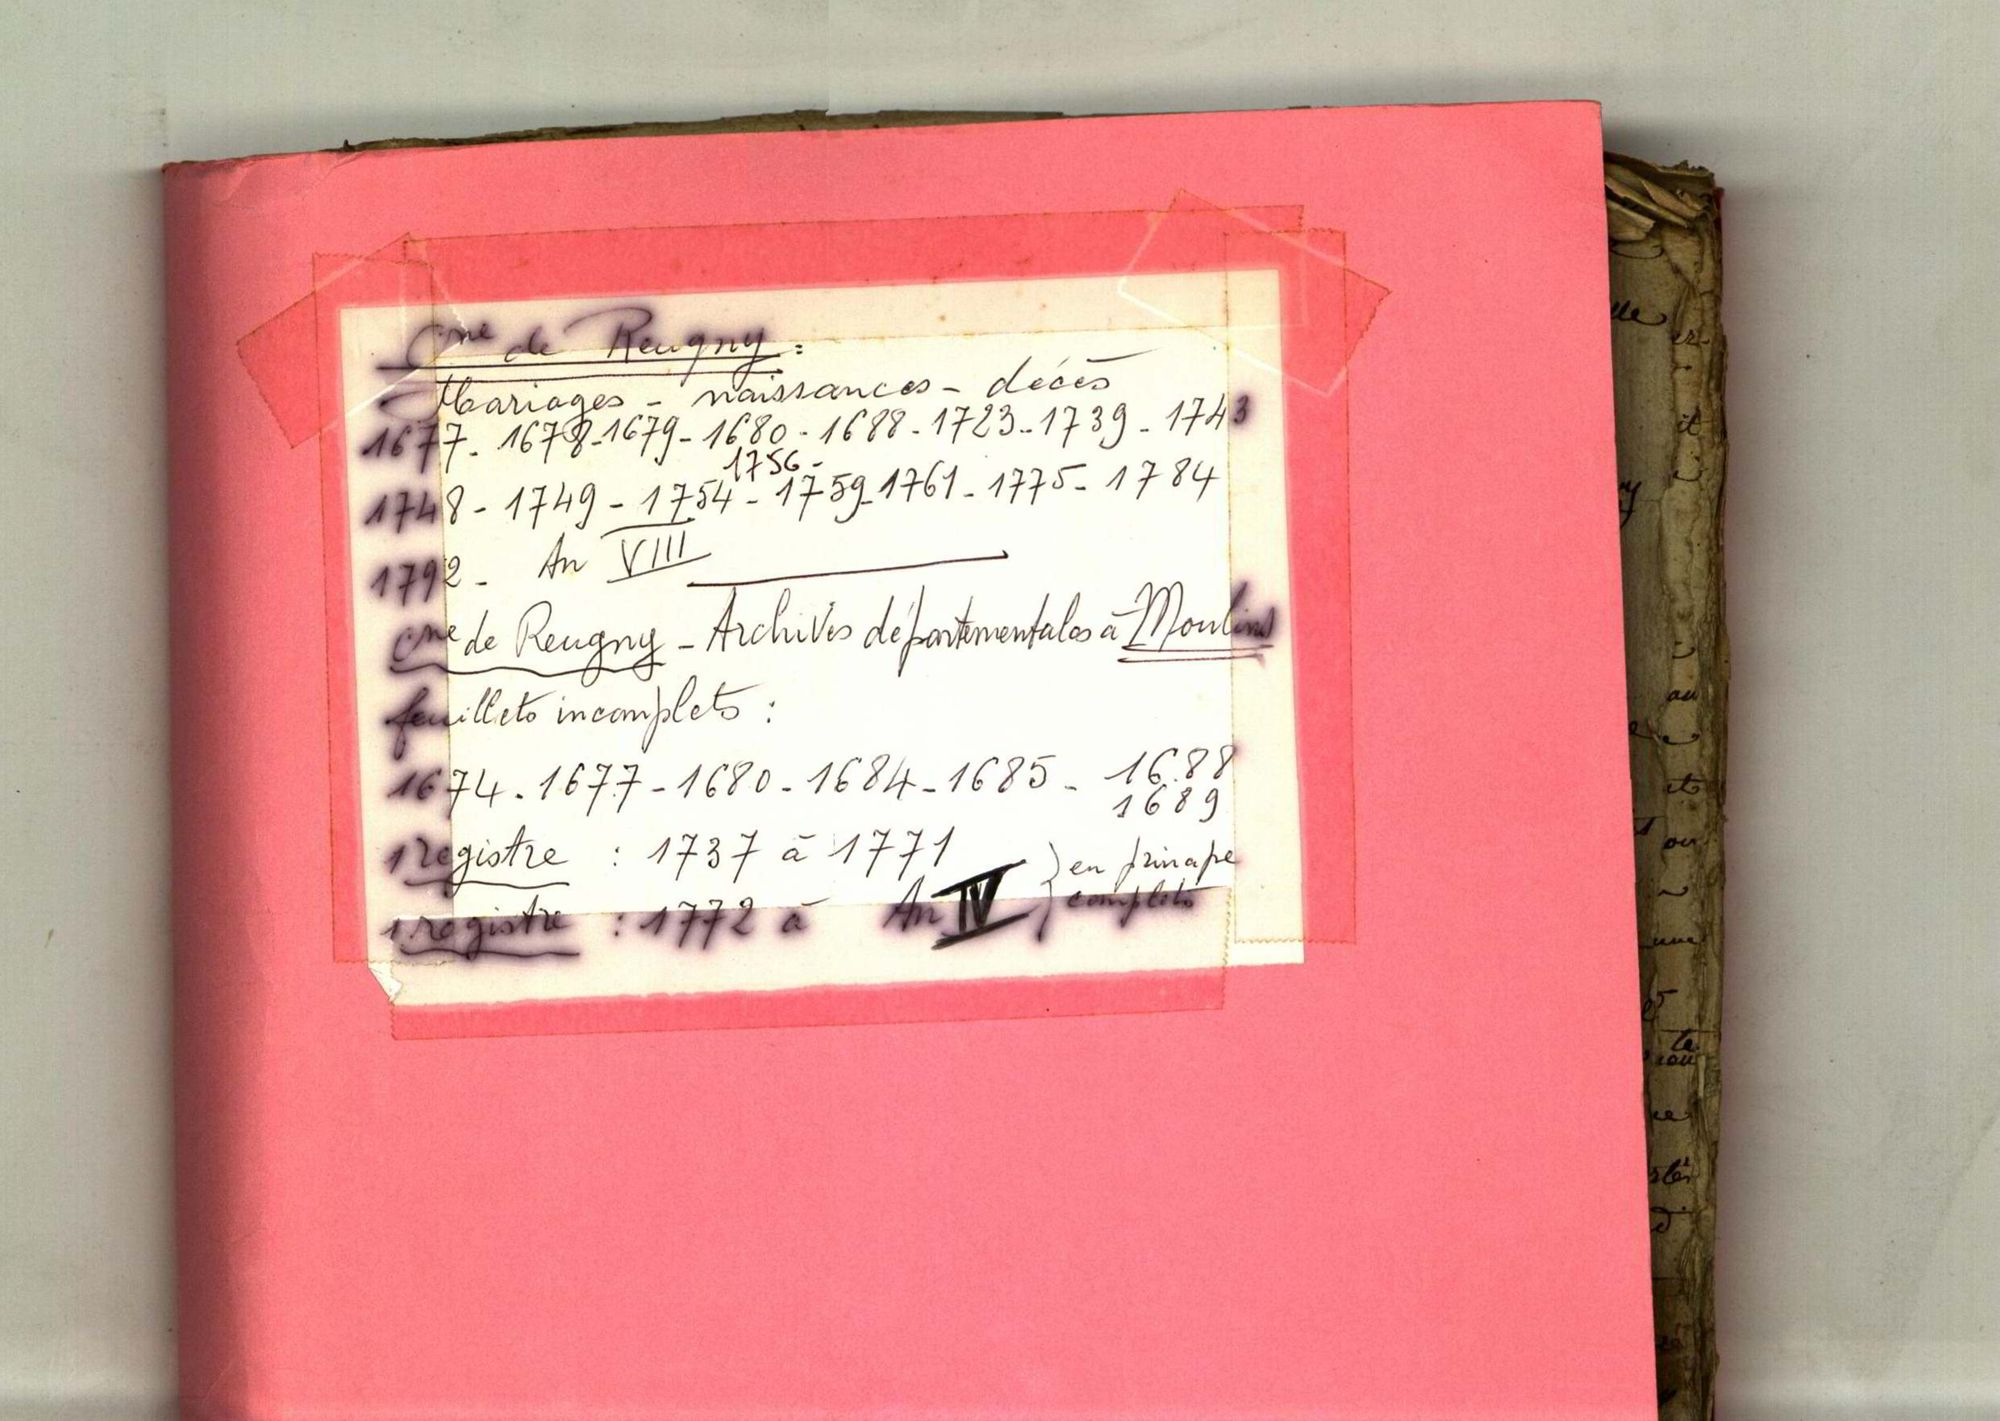 Cne de Reugny :
Mariages - naissances - décès
1677 - 1678 - 1679 - 1680 - 1688 - 1723 - 1739 - 1743
1756 -
1748 - 1749 - 1754 - 1759 - 1761 - 1775 - 1784
1792 - An VIII
Cne de Reugny - Archives départementales à Moulins
feuillets incomplets :
1674 - 1677 - 1680 - 1684 - 1685 - 1688
1689
1 registre : 1737 à 1771 } en principe
1 registre : 1772 à An IV } complets
elle
er-
it
y
au
et
ou
une
te